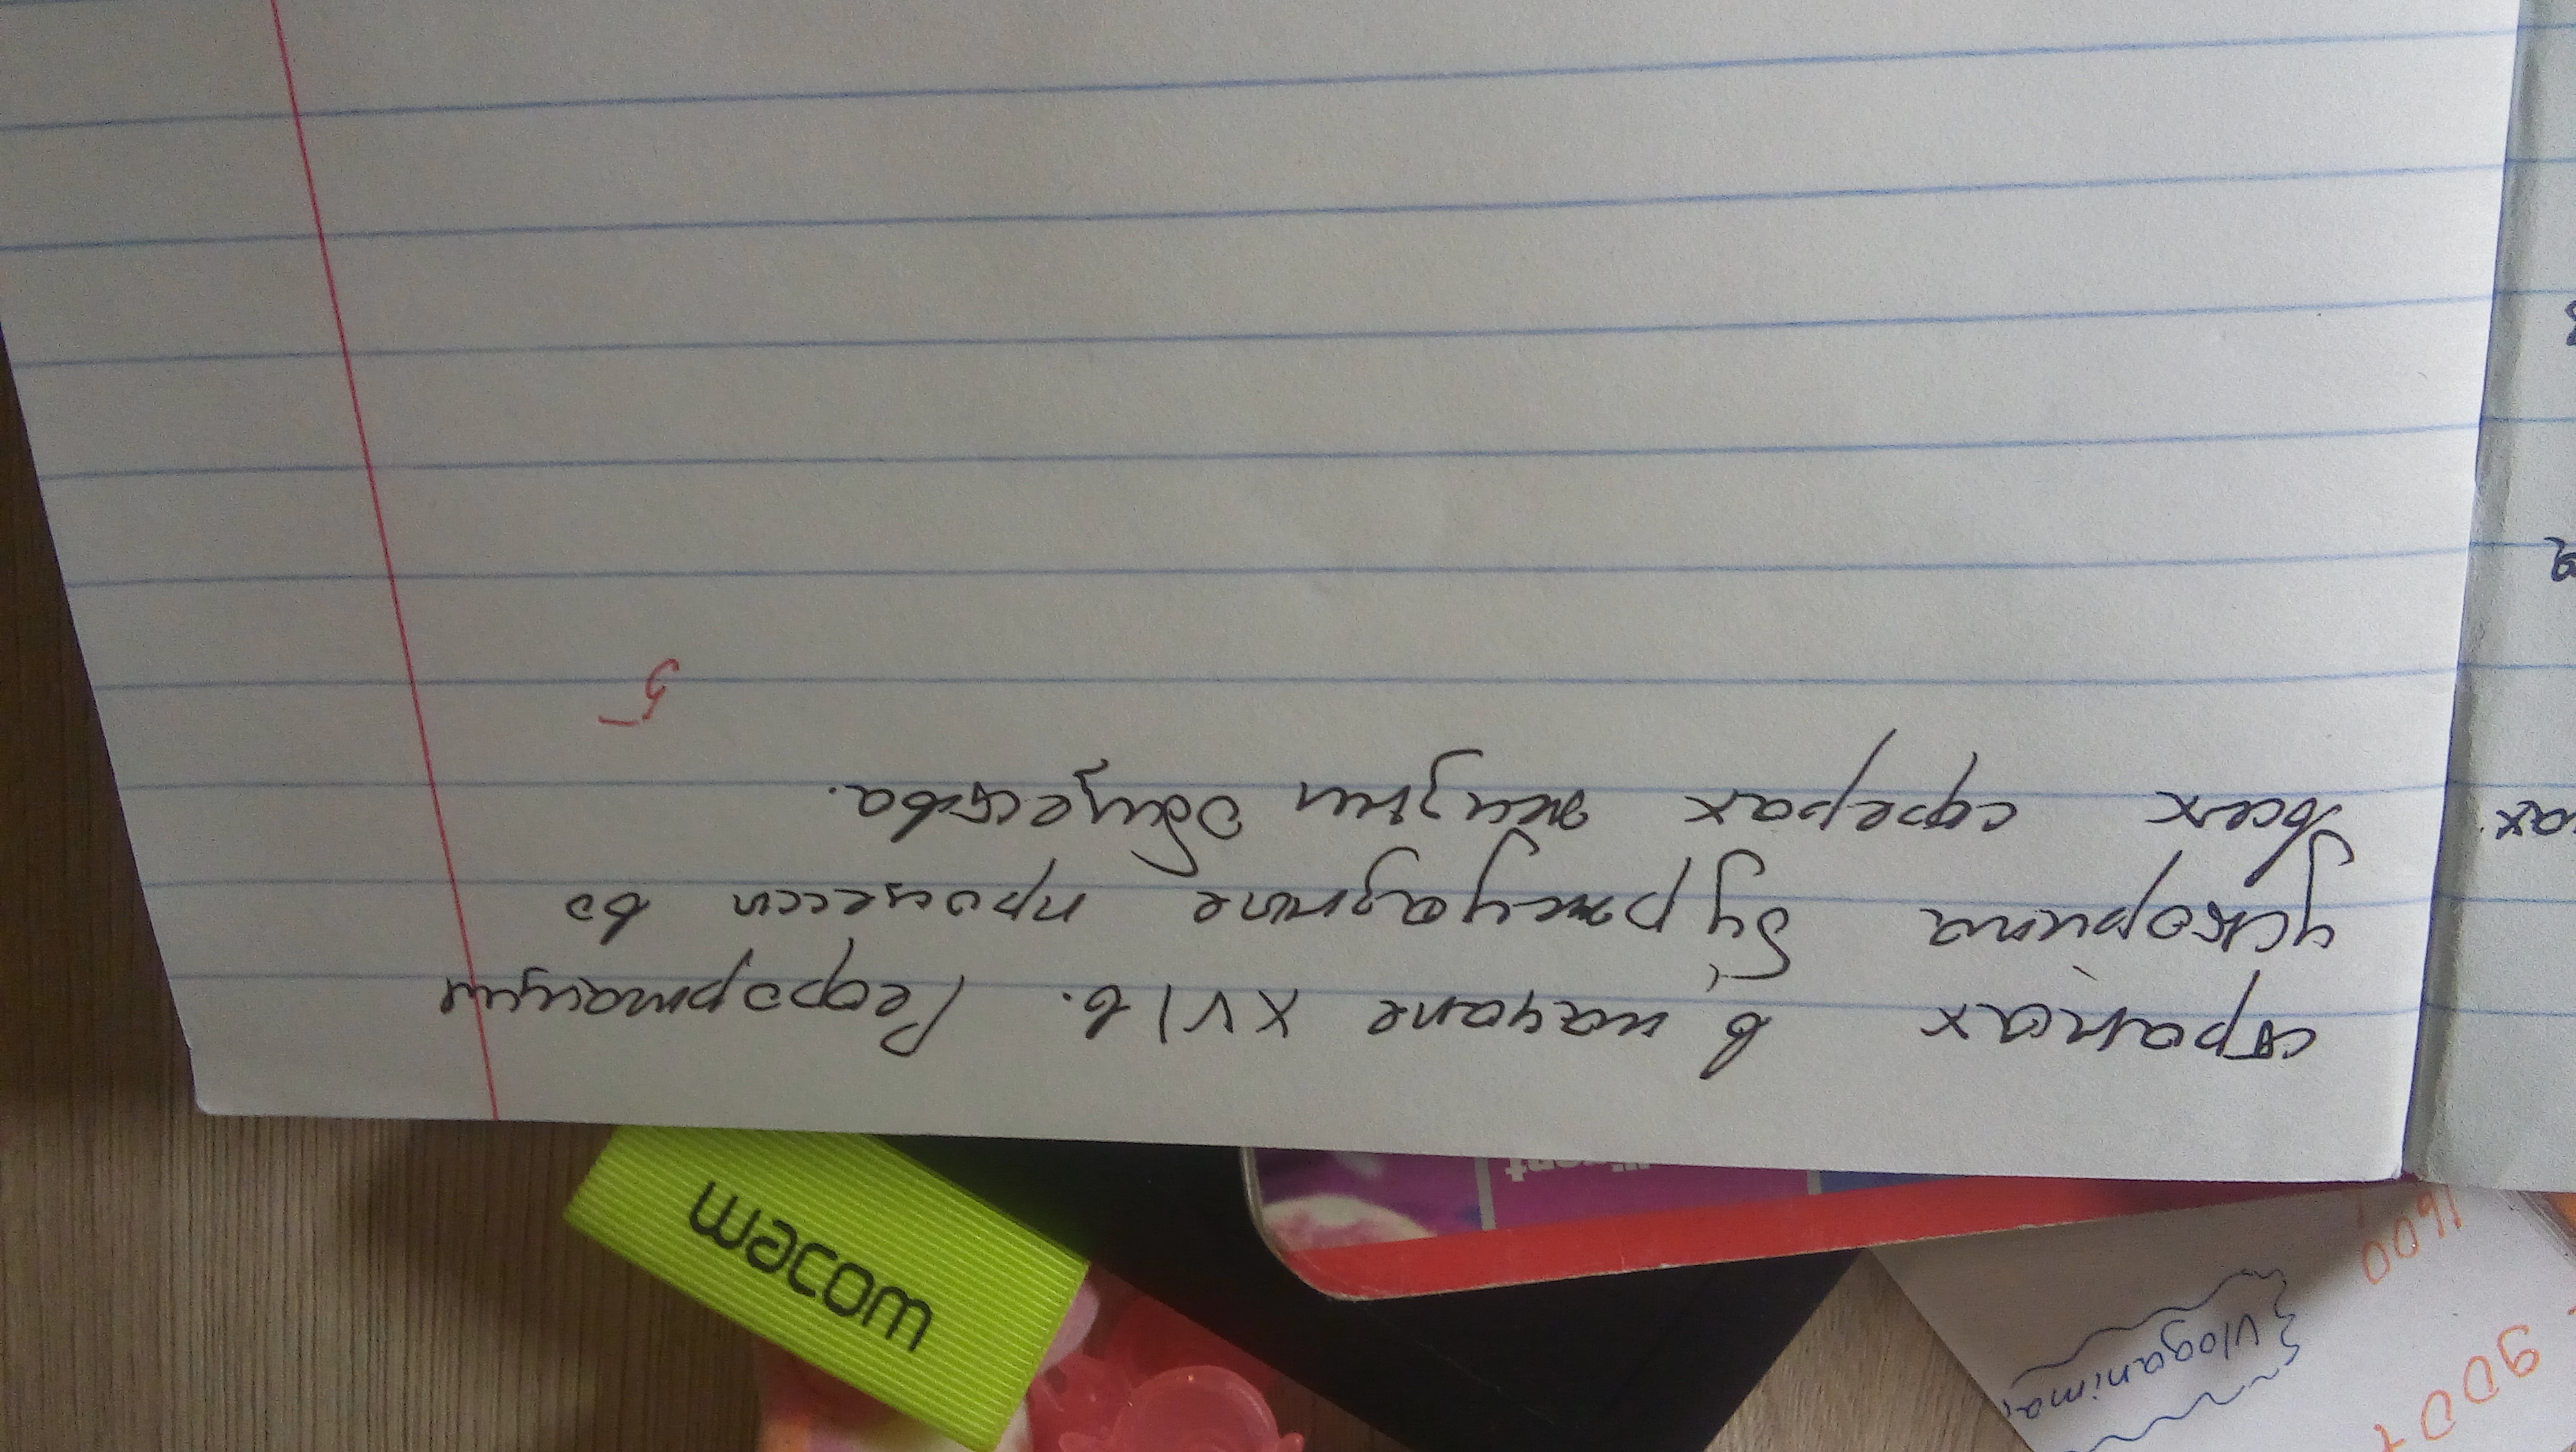 странах в начале XVI в. Реформации
ускорила буржуазные процессы во
всех сферах жизни общества.
5
ах.
wacom
1600
vloganima
900